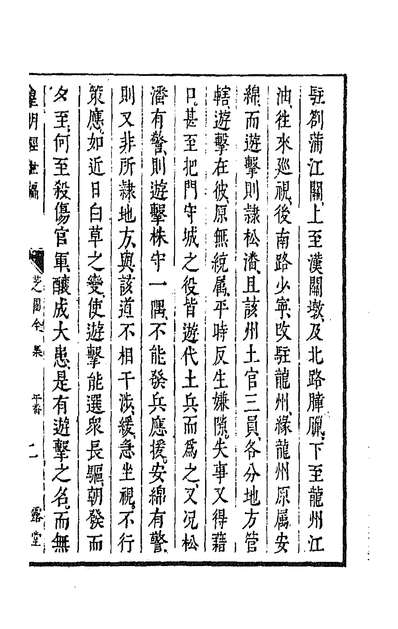 駐劄蒲江關上至漢關墩及北路臃硼下至龍州江
油往來廵視後南路少寧改駐龍州緣龍州原属安
綿而遊擊則隷松潘且該州土官三員各分地方管
轄遊擊在彼原無統属平時反生嫌隙失事又得藉
口甚至把門守城之役皆遊代土兵而爲之又况松
潘有警則遊擊株守一隅不能發兵應援安綿有警
則又非所隷地方與該道不相干涉緩急坐視不行
策應如近日白草之變使遊擊能選衆長驅朝發而
夕至何至殺傷官軍釀成大患是有遊擊之名而無
皇明經世編